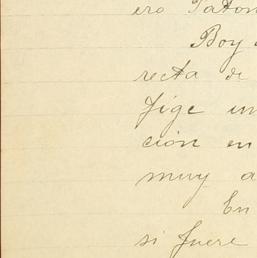 ero Paton
Boy
recta de
fige un
ción en
muy a
En
si fuere